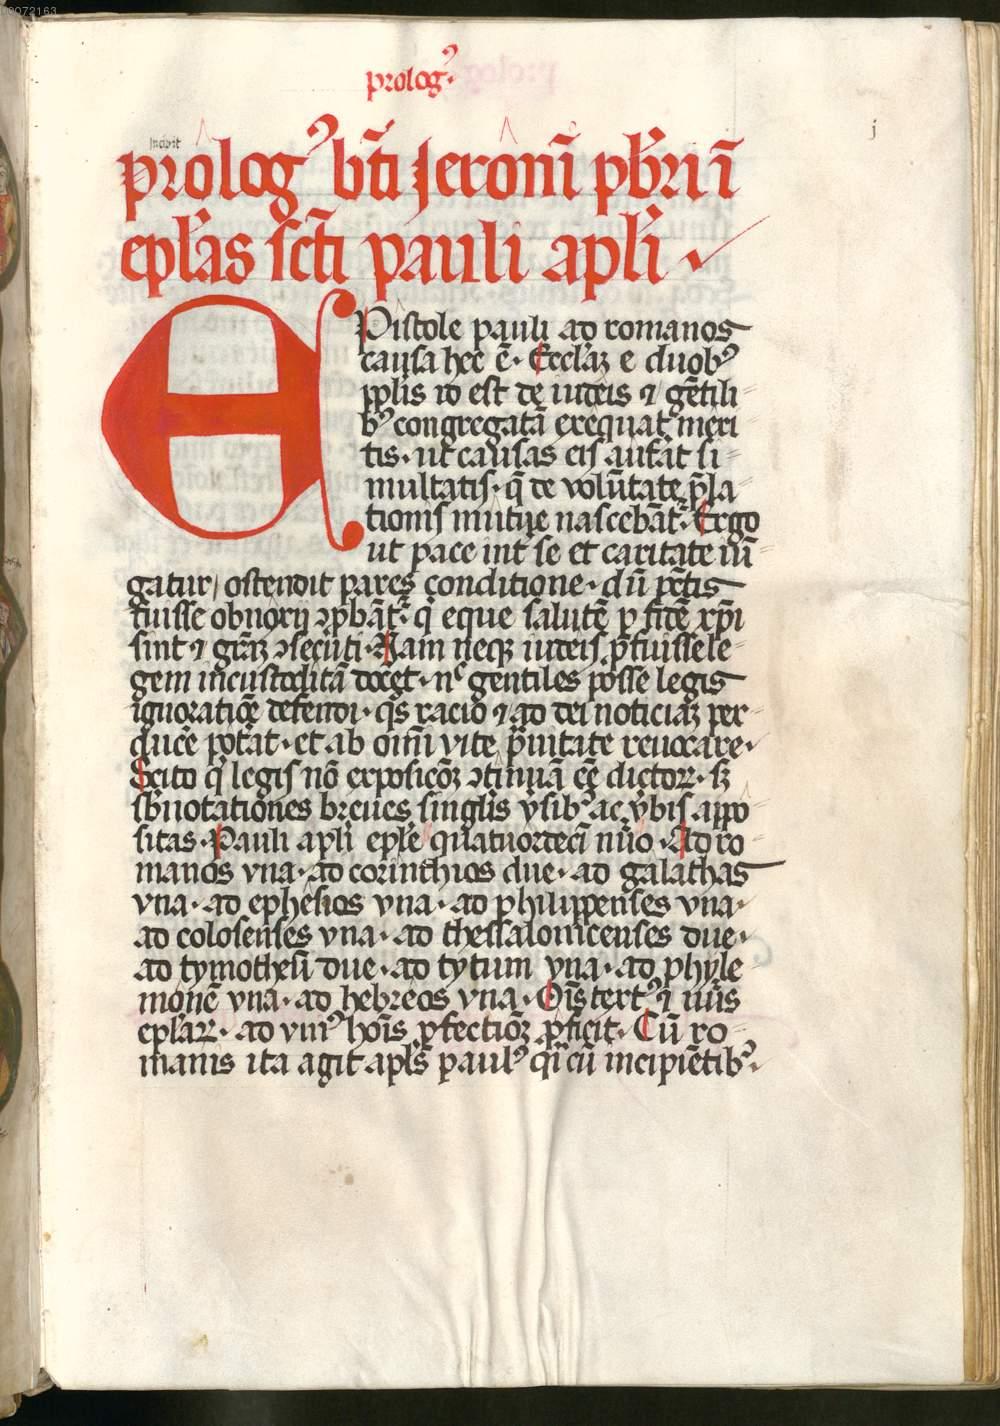 00072163
prologꝰ
j
Incipit
prologꝰ bt̄i Jeronī pb̄ri ī
ep̄las sc̄ti pauli apl̄i
EPistole pauli ad romanos
causa hec ē. Eccl̄aꝫ e duobꝰ
ppl̄is id est de iudeis ⁊ gētili
bꝰ congregatā exequat meri
tis. ut causas eis aufāt si
multatis. q̄ de volūtate p̄la
tionis mutue nascebāt᷑. Ergo
ut pace int̄ se et caritate iū
gatur / ostendit pares conditione. dū pctīs
fuisse obnoxij ꝯp̄bāt᷑. q̄ eque salutē ꝑ fidē xp̄i
sint ⁊ gr̄aꝫ ꝯsecuti. Nam neqꝫ iudeis p̄fuisse le
gem incustoditā docet. nͨ gentiles posse legis
ignoratiōe defendi. q̄s racio ⁊ ad dei noticiaꝫ per
ducē̄ potāt. et ab om̄i vite p̄uitate reuocare.
Scito q̄ legis nō exposicōꝫ ꝯtinuā ēē dictoꝝ. sꝫ
sb̄notationes breues singl̄is v̄sibꝰ ac v̄bis appo
sitas. Pauli apl̄i ep̄le quatuordecī nūo. Ad ro
manos vna. ad corinthios due. ad galathas
vna. ad ephesios vna. ad philippenses vna.
ad colosenses vna. ad thessalonicenses due.
ad tymotheū due. ad tytum vna. ad phyle
monē vna. ad hebreos vna. Oīs textꝰ ⁊ nūs
ep̄laꝝ. ad vniꝰ hoīs ꝑfectiōꝫ ꝓficit. Cū ro
manis ita agit apl̄s paulꝰ q̄i cū incipiētibꝰ.